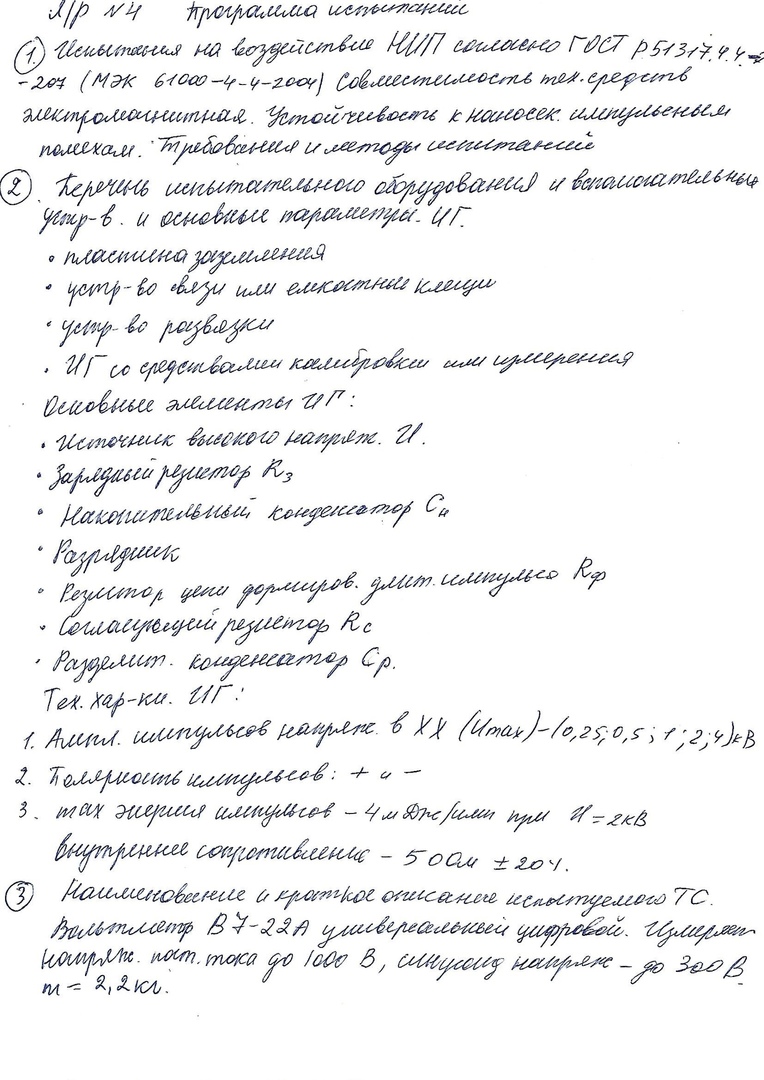 Л/р №4 Программа испытаний
① Испытания на воздействие НИП согласно ГОСТ Р 51317.4.4-
-207 (МЭК 61000-4-4-2004) Совместимость тех. средств
электромагнитная. Устойчивость к наносек. импульсным
помехам. Требования и методы испытаний
② Перечень испытательного оборудования и вспомогательных
устр-в. и основные параметры. ИГ.
• пластина заземления
• устр-во связи или емкостные клещи
• устр-во развязки
• ИГ со средствами калибровки или измерения
Основные элементы ИГ:
• Источник высокого напряж. U.
• Зарядный резистор Rз
• Накопительный конденсатор Cн
• Разрядник
• Резистор цепи формиров. длит. импульса Rф
• Согласующий резистор Rc
• Разделит. конденсатор Cр.
Тех. хар-ки. ИГ:
1. Ампл. импульсов напряж. в ХХ (Umax) - (0,25; 0,5; 1; 2; 4) кВ
2. Полярность импульсов: + и -
3. max энергия импульсов - 4 мДж/имп при U = 2кВ
Внутреннее сопротивление - 50 Ом ± 20%.
③ Наименование и краткое описание испытуемого ТС.
Вольтметр В7-22А универсальный цифровой. Измеряет
напряж. пост. тока до 1000 В, синусоид напряж - до 300 В.
m = 2,2 кг.